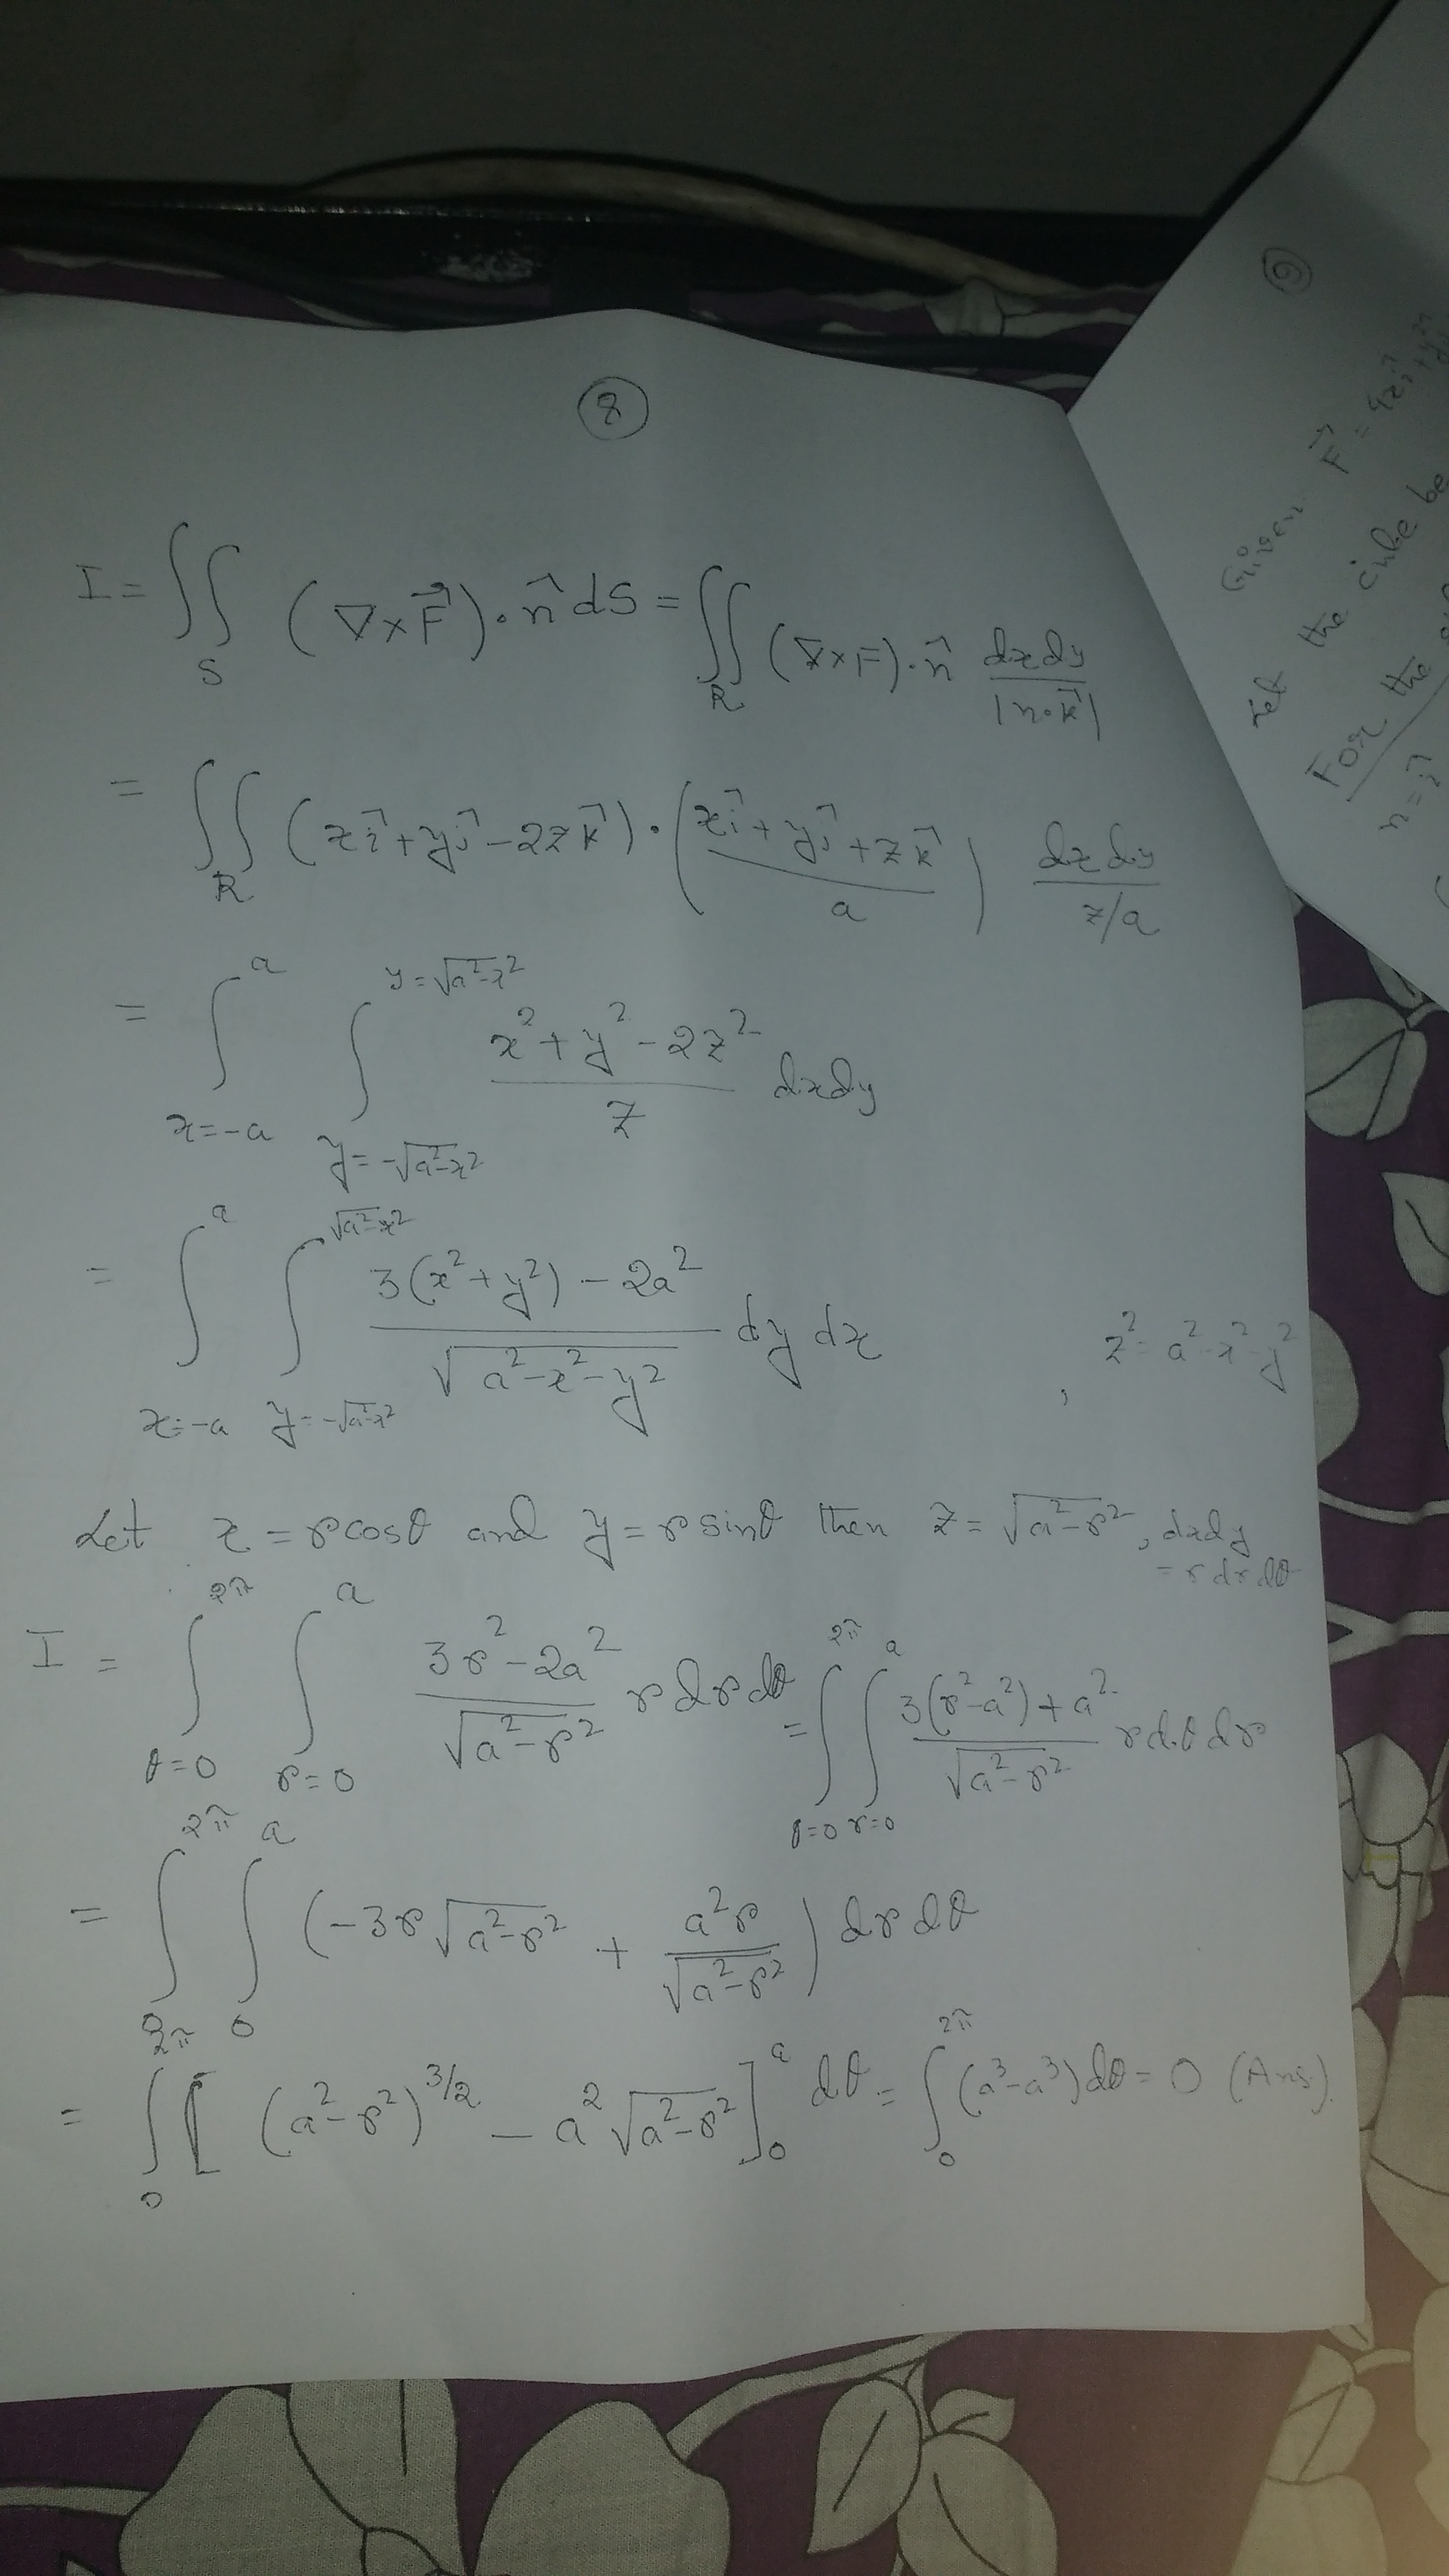 8
I = ∬_S (∇×F⃗)·n̂ dS = ∬_R (∇×F)·n̂ dxdy/|n·k⃗|
= ∬_R (xi⃗+yj⃗-2zk⃗)·(xi⃗+yj⃗+zk⃗/a) dxdy/z/a
= ∫_{x=-a}^{a} ∫_{y=-√(a²-x²)}^{y=√(a²-x²)} (x²+y²-2z²)/z dxdy
= ∫_{x=-a}^{a} ∫_{y=-√(a²-x²)}^{√(a²-x²)} (3(x²+y²)-2a²)/√(a²-x²-y²) dy dx , z²=a²-x²-y²
Let x=rcosθ and y=rsinθ then z=√(a²-r²), dxdy
=rdrdθ
I = ∫_{θ=0}^{2π} ∫_{r=0}^{a} (3r²-2a²)/√(a²-r²) rdrdθ = ∫_{θ=0}^{2π} ∫_{r=0}^{a} (3(r²-a²)+a²)/√(a²-r²) rdθdr
= ∫_0^{2π} ∫_0^a (-3r√(a²-r²) + a²r/√(a²-r²)) drdθ
= ∫_0^{2π} [(a²-r²)^{3/2} - a²√(a²-r²)]_0^a dθ = ∫_0^{2π} (a³-a³)dθ = 0 (Ans).
9
Given F⃗ = 4xi⃗+y²
Let the cube be
For the
n=i⃗